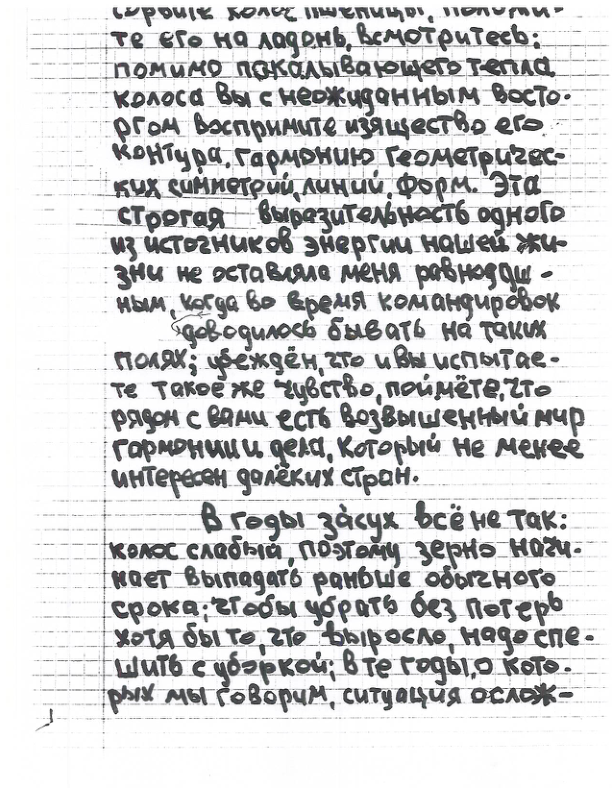 сорвите колос пшеницы, положи-
те его на ладонь, всмотритесь:
помимо покалывающего тепла
колоса вы с неожиданным восто-
ргом воспримите изящество его
контура, гармонию геометричес-
ких симметрий, линий, форм. Эта
строгая выразительность одного
из источников энергии нашей жи-
зни не оставляла меня равнодуш-
ным, когда во время командировок
доводилось бывать на таких
полях; убеждён, что и вы испытае-
те такое же чувство, поймёте, что
рядом с вами есть возвышенный мир
гармонии и дела, который не менее
интересен далёких стран.
В годы засух всё не так:
колос слабый, поэтому зерно начи-
нает выпадать раньше обычного
срока; чтобы убрать без потерь
хотя бы то, что выросло, надо спе-
шить с уборкой; в те годы, о кото-
рых мы говорим, ситуация ослож-